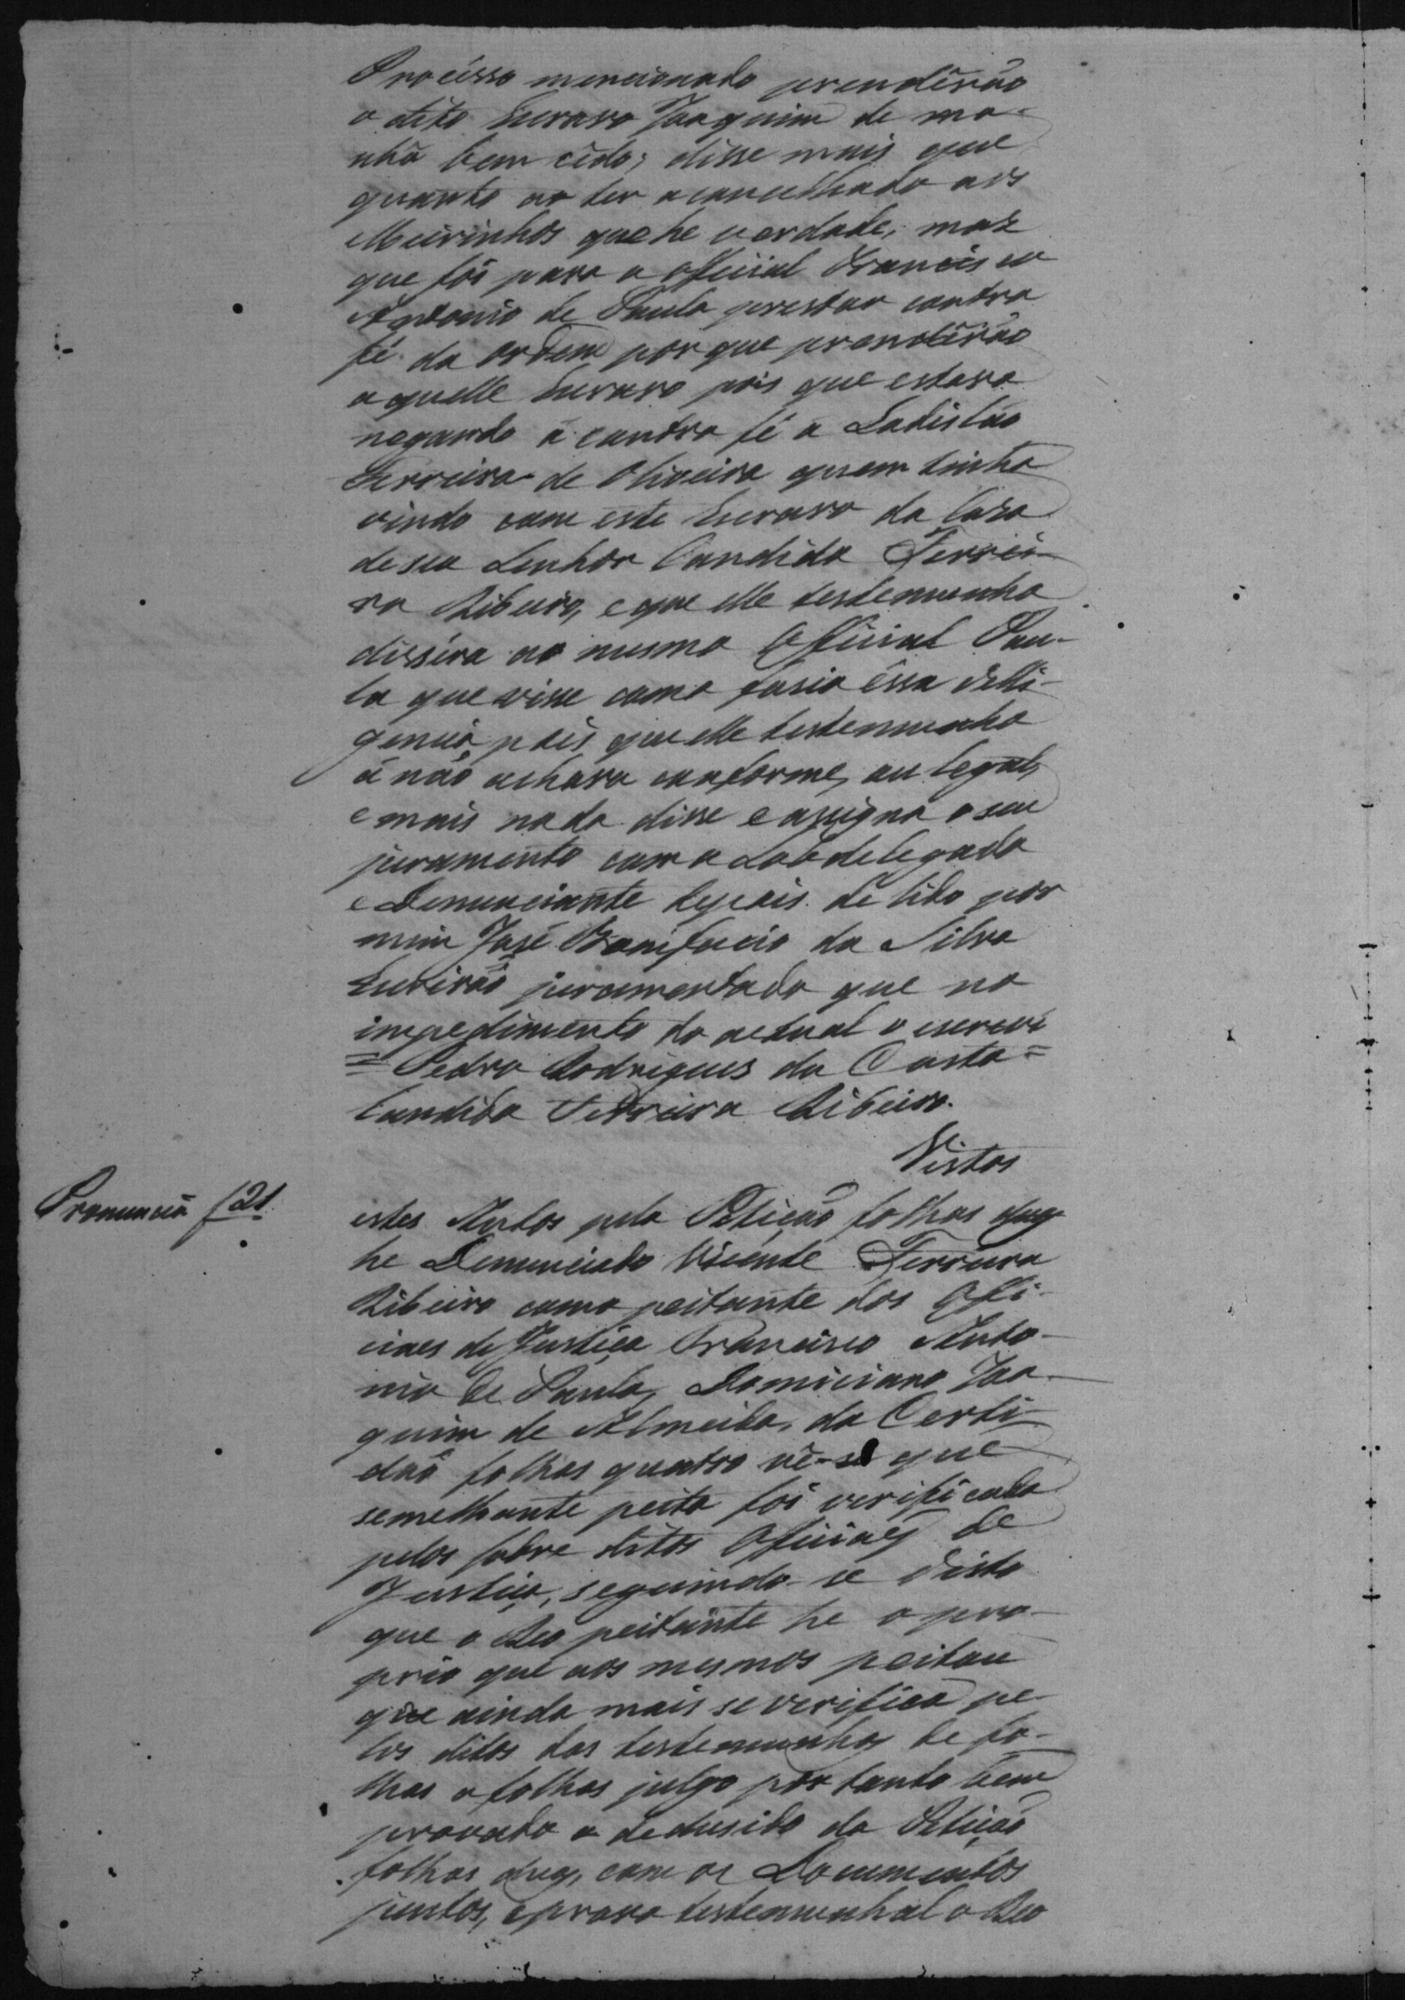 Procésso mencionado prendêrão
o dito Escravo Joaquim de ma-
nhã bem cêdo; disse mais que
quanto ao ter aconcelhado aos
Meirinhos que he verdade, mas
que foi para o Official Francisco
Antonio de Paula prestar contra
fé da ordem por que prendêrão
aquelle Escravo pois que estava
negando a contra fé a Ladislão
Ferreira de Oliveira quem tinha
vindo com este Escravo da Caza
de seu Senhor Candido Ferrei-
ra Ribeiro, e que elle testemunha
disséra ao mesmo Official Pau-
la que visse como fasia éssa delli-
gencia pois que elle testemunha
a não achava conforme, ou legal,
e mais nada disse e assigna o seu
juramento com o Subdelegado
e Denunciante depois de lido por
mim José Bonifacio da Silva
Escrivão juramentado que no
impedimento do actual o escrevi
= Pedro Rodrigues da Costa =
Candido Ferreira Ribeiro.
Vistos
Pronuncia f 21.
estes Autos pela Petição folhas duas
he Denunciado Vicente Ferreira
Ribeiro como peitante dos Offi-
ciaes de Justiça Francisco Anto-
nio de Paula, Domiciano Joa-
quim de Almeida, da Certi-
dão folhas quatro vê-se que
semelhante peita foi verificada
pelos sobre ditos Officiaes de
Justiça, seguindo-se disto
que o Reo peitante he o pro-
prio que aos mesmos peitou
que ainda mais se verifica pe-
los ditos das testemunhas de fo-
lhas a folhas julgo por tanto bem
provado o dedusido da Petição
folhas duas, com os Documentos
juntos, e prova testemunhal o Reo